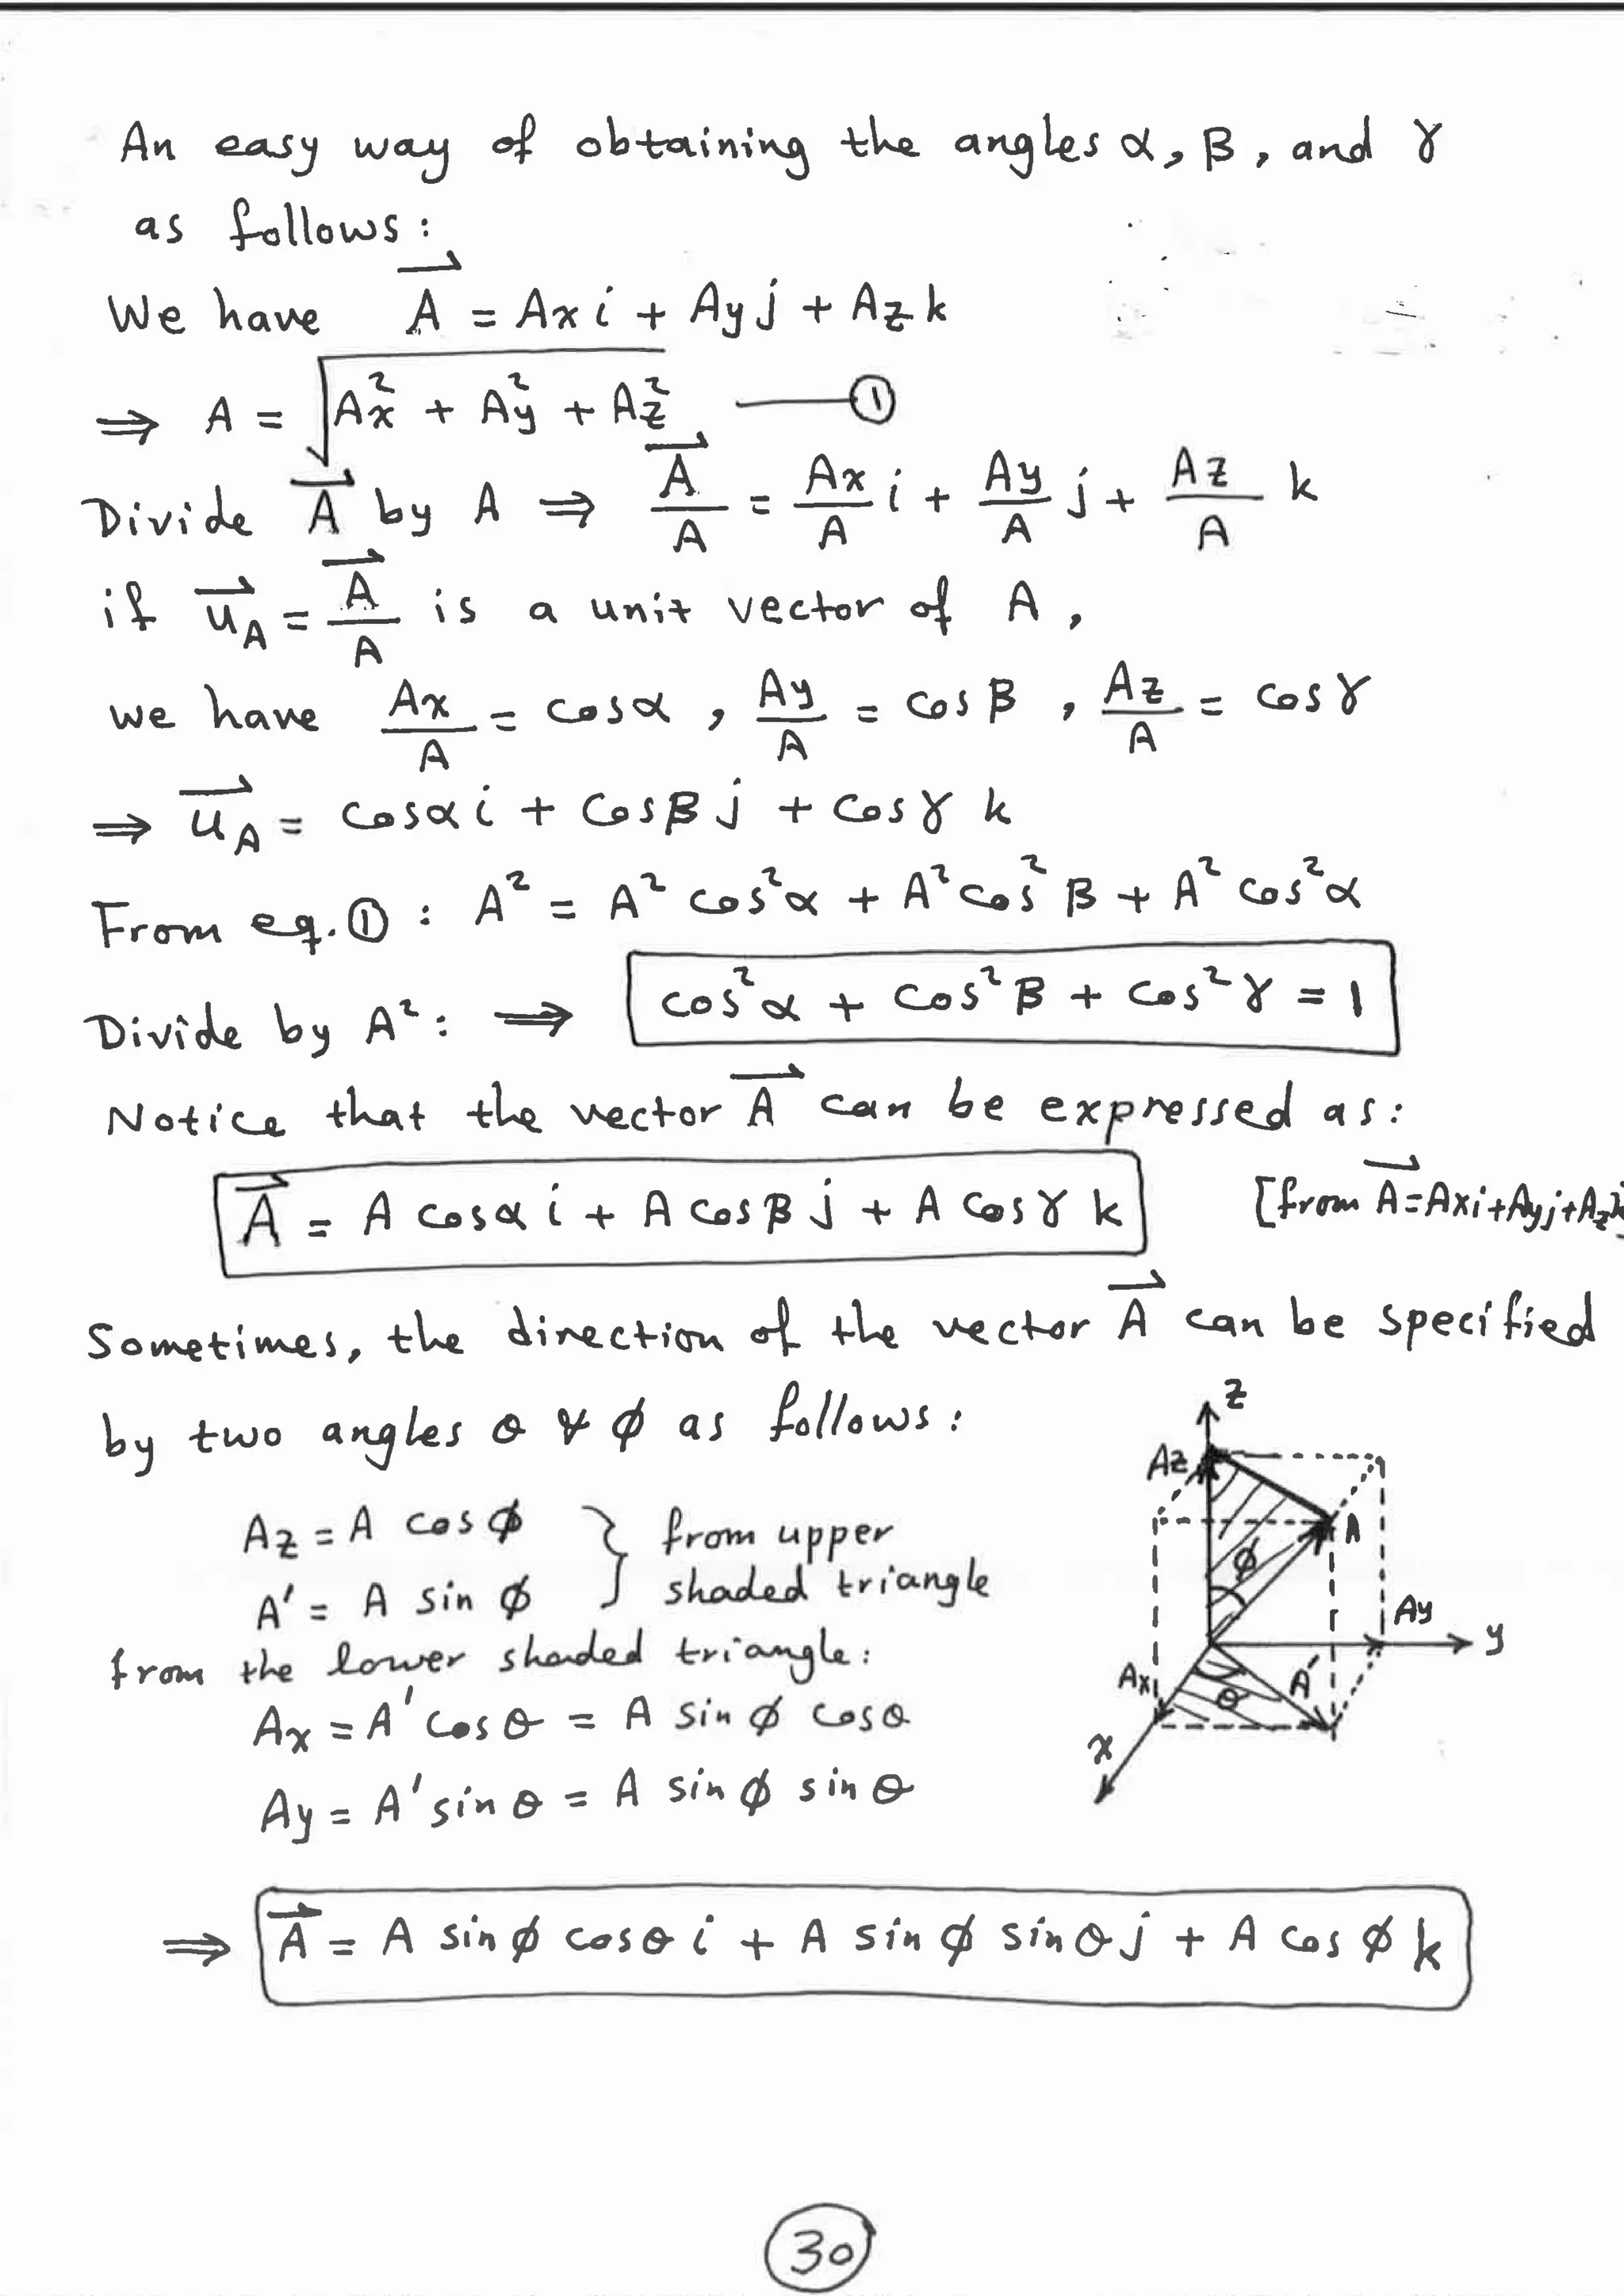 An easy way of obtaining the angles α, β, and γ
as follows:
We have A⃗ = Ax i + Ay j + Az k
⇒ A = √(Ax² + Ay² + Az²) —— ①
Divide A⃗ by A ⇒ A⃗/A = Ax/A i + Ay/A j + Az/A k
if u⃗_A = A⃗/A is a unit vector of A,
we have Ax/A = cosα, Ay/A = cosβ, Az/A = cosγ
⇒ u⃗_A = cosα i + cosβ j + cosγ k
From eq.①: A² = A² cos²α + A² cos²β + A² cos²α
Divide by A²: ⇒ cos²α + cos²β + cos²γ = 1
Notice that the vector A⃗ can be expressed as:
A⃗ = A cosα i + A cosβ j + A cosγ k [from A⃗=Axi+Ayj+Azk]
Sometimes, the direction of the vector A⃗ can be specified
by two angles θ & ϕ as follows:
Az = A cosϕ } from upper
A' = A sin ϕ shaded triangle
from the lower shaded triangle:
Ax = A' cosθ = A sinϕ cosθ
Ay = A' sinθ = A sinϕ sinθ
z
Az
A
ϕ
Ay
y
Ax
θ
A'
x
⇒ A⃗ = A sinϕ cosθ i + A sinϕ sinθ j + A cosϕ k
30